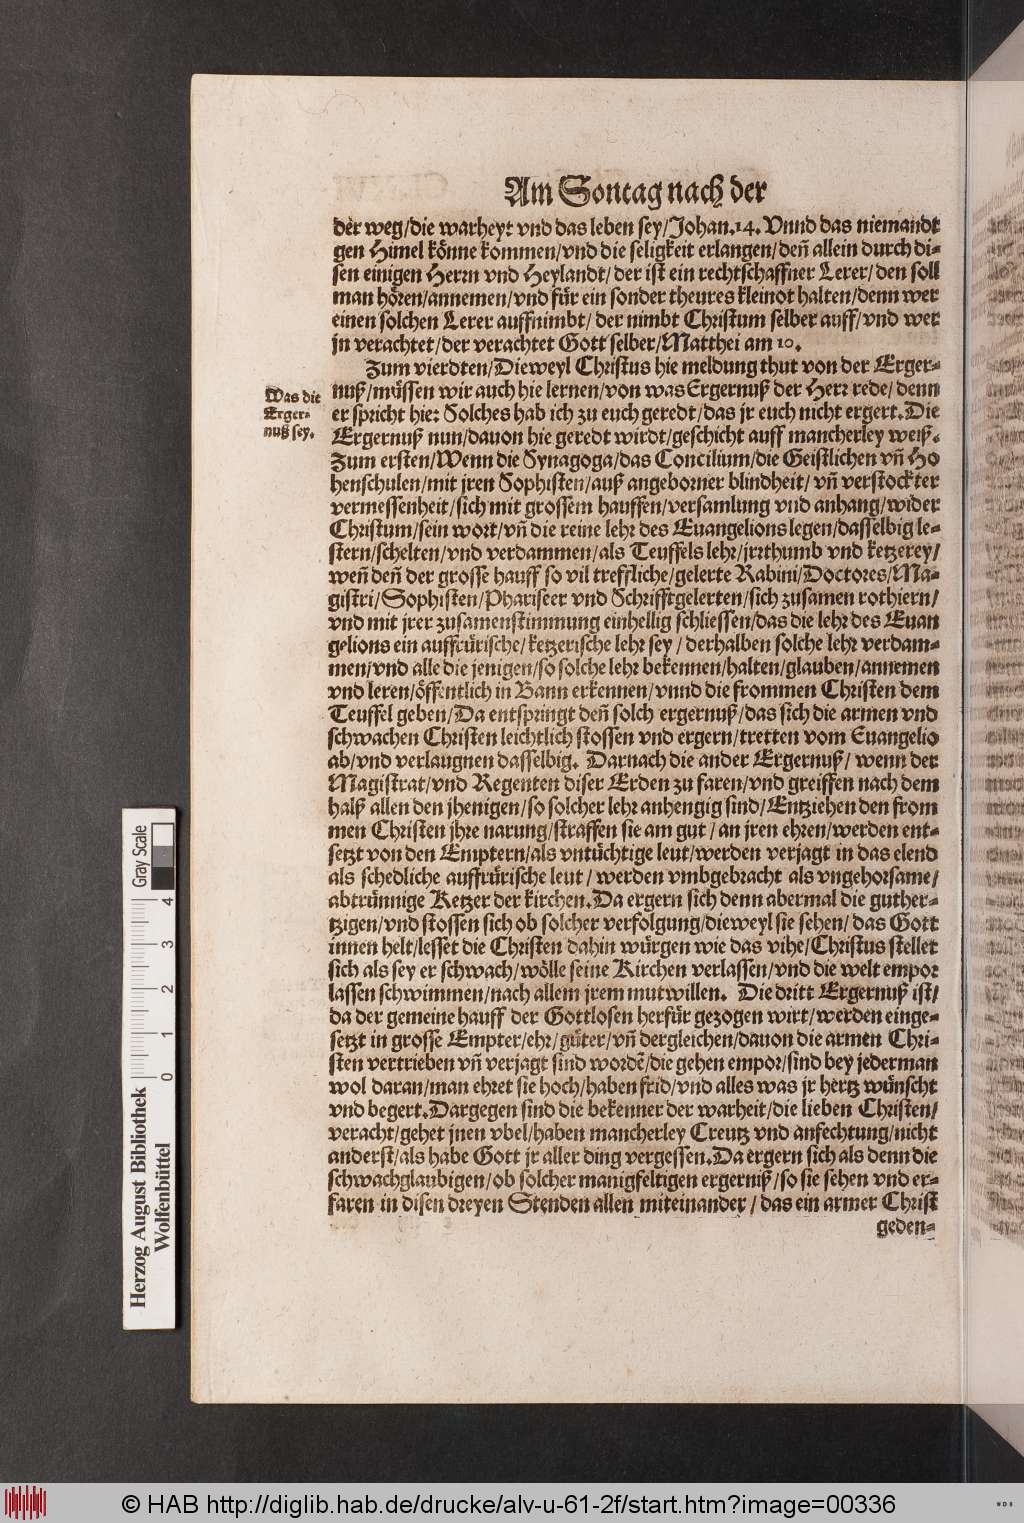 Am Sontag nach der
der weg/die warheyt vnd das leben sey/Johan.14. Vnnd das niemandt
gen Himel könne kommen/vnd die seligkeit erlangen/deñ allein durch di-
sen einigen Herrn vnd Heylandt/der ist ein rechtschaffner Lerer/den soll
man hören/annemen/vnd für ein sonder theures kleinot halten/denn wer
einen solchen Lerer auffnimbt/ der nimbt Christum selber auff/vnd wer
jn verachtet/der verachtet Gott selber/Matthei am 10.
Zum vierdten/Dieweyl Christus hie meldung thut von der Erger-
nuß/müssen wir auch hie lernen/von was Ergernuß der Herr rede/denn
er spricht hie: Solches hab ich zu euch geredt/das jr euch nicht ergert.Die
Ergernuß nun/dauon hie geredt wirdt/geschicht auff mancherley weiß.
Zum ersten/Wenn die Synagoga/das Concilium/die Geistlichen vñ Ho
henschulen/mit jren Sophisten/auß angeborner blindheit/vñ verstockter
vermessenheit/sich mit grossem hauffen/versamlung vnd anhang/wider
Christum/sein wort/vñ die reine lehr des Euangelions legen/dasselbig le-
stern/schelten/vnd verdammen/als Teuffels lehr/jrrthumb vnd ketzerey/
weñ deñ der grosse hauff so vil treffliche/gelerte Rabini/Doctores/Ma-
gistri/Sophisten/Phariseer vnd Schrifftgelerten/sich zusamen rothiern/
vnd mit jrer zusamenstimmung einhellig schliessen/das die lehr des Euan
gelions ein auffrürische/ketzerische lehr sey/ derhalben solche lehr verdam-
men/vnd alle die jenigen/so solche lehr bekennen/halten/glauben/annemen
vnd leren/öffentlich in Bann erkennen/vnnd die frommen Christen dem
Teuffel geben/Da entspringt deñ solch ergernuß/das sich die armen vnd
schwachen Christen leichtlich stossen vnd ergern/tretten vom Euangelio
ab/vnd verlaugnen dasselbig. Darnach die ander Ergernuß/ wenn der
Magistrat/vnd Regenten diser Erden zu faren/vnd greiffen nach dem
halß allen den jhenigen/so solcher lehr anhengig sind/Entziehen den from
men Christen jhre narung/straffen sie am gut/an jren ehren/werden ent-
setzt von den Emptern/als vntüchtige leut/werden verjagt in das elend
als schedliche auffrürische leut/ werden vmbgebracht als vngehorsame/
abtrünnige Ketzer der kirchen.Da ergern sich denn abermal die guther-
tzigen/vnd stossen sich ob solcher verfolgung/dieweyl sie sehen/ das Gott
innen helt/lesset die Christen dahin würgen wie das vihe/Christus stellet
sich als sey er schwach/wölle seine Kirchen verlassen/vnd die welt empor
lassen schwimmen/nach allem jrem mutwillen. Die dritt Ergernuß ist/
da der gemeine hauff der Gottlosen herfür gezogen wirt/werden einge-
setzt in grosse Empter/ehr/güter/vñ dergleichen/dauon die armen Chri-
sten vertrieben vñ verjagt sind wordẽ/die gehen empor/sind bey jederman
wol daran/man ehret sie hoch/haben frid/vnd alles was jr hertz wünscht
vnd begert.Dargegen sind die bekenner der warheit/die lieben Christen/
veracht/gehet jnen vbel/haben mancherley Creutz vnd anfechtung/nicht
anderst/als habe Gott jr aller ding vergessen.Da ergern sich als denn die
schwachglaubigen/ob solcher manigfeltigen ergerniß/so sie sehen vnd er-
faren in disen dreyen Stenden allen miteinander/ das ein armer Christ
geden-
Was die
Erger-
nuß sey.
Herzog August Bibliothek
Wolfenbüttel
0 1 2 3 4
Gray Scale
© HAB http://diglib.hab.de/drucke/alv-u-61-2f/start.htm?image=00336